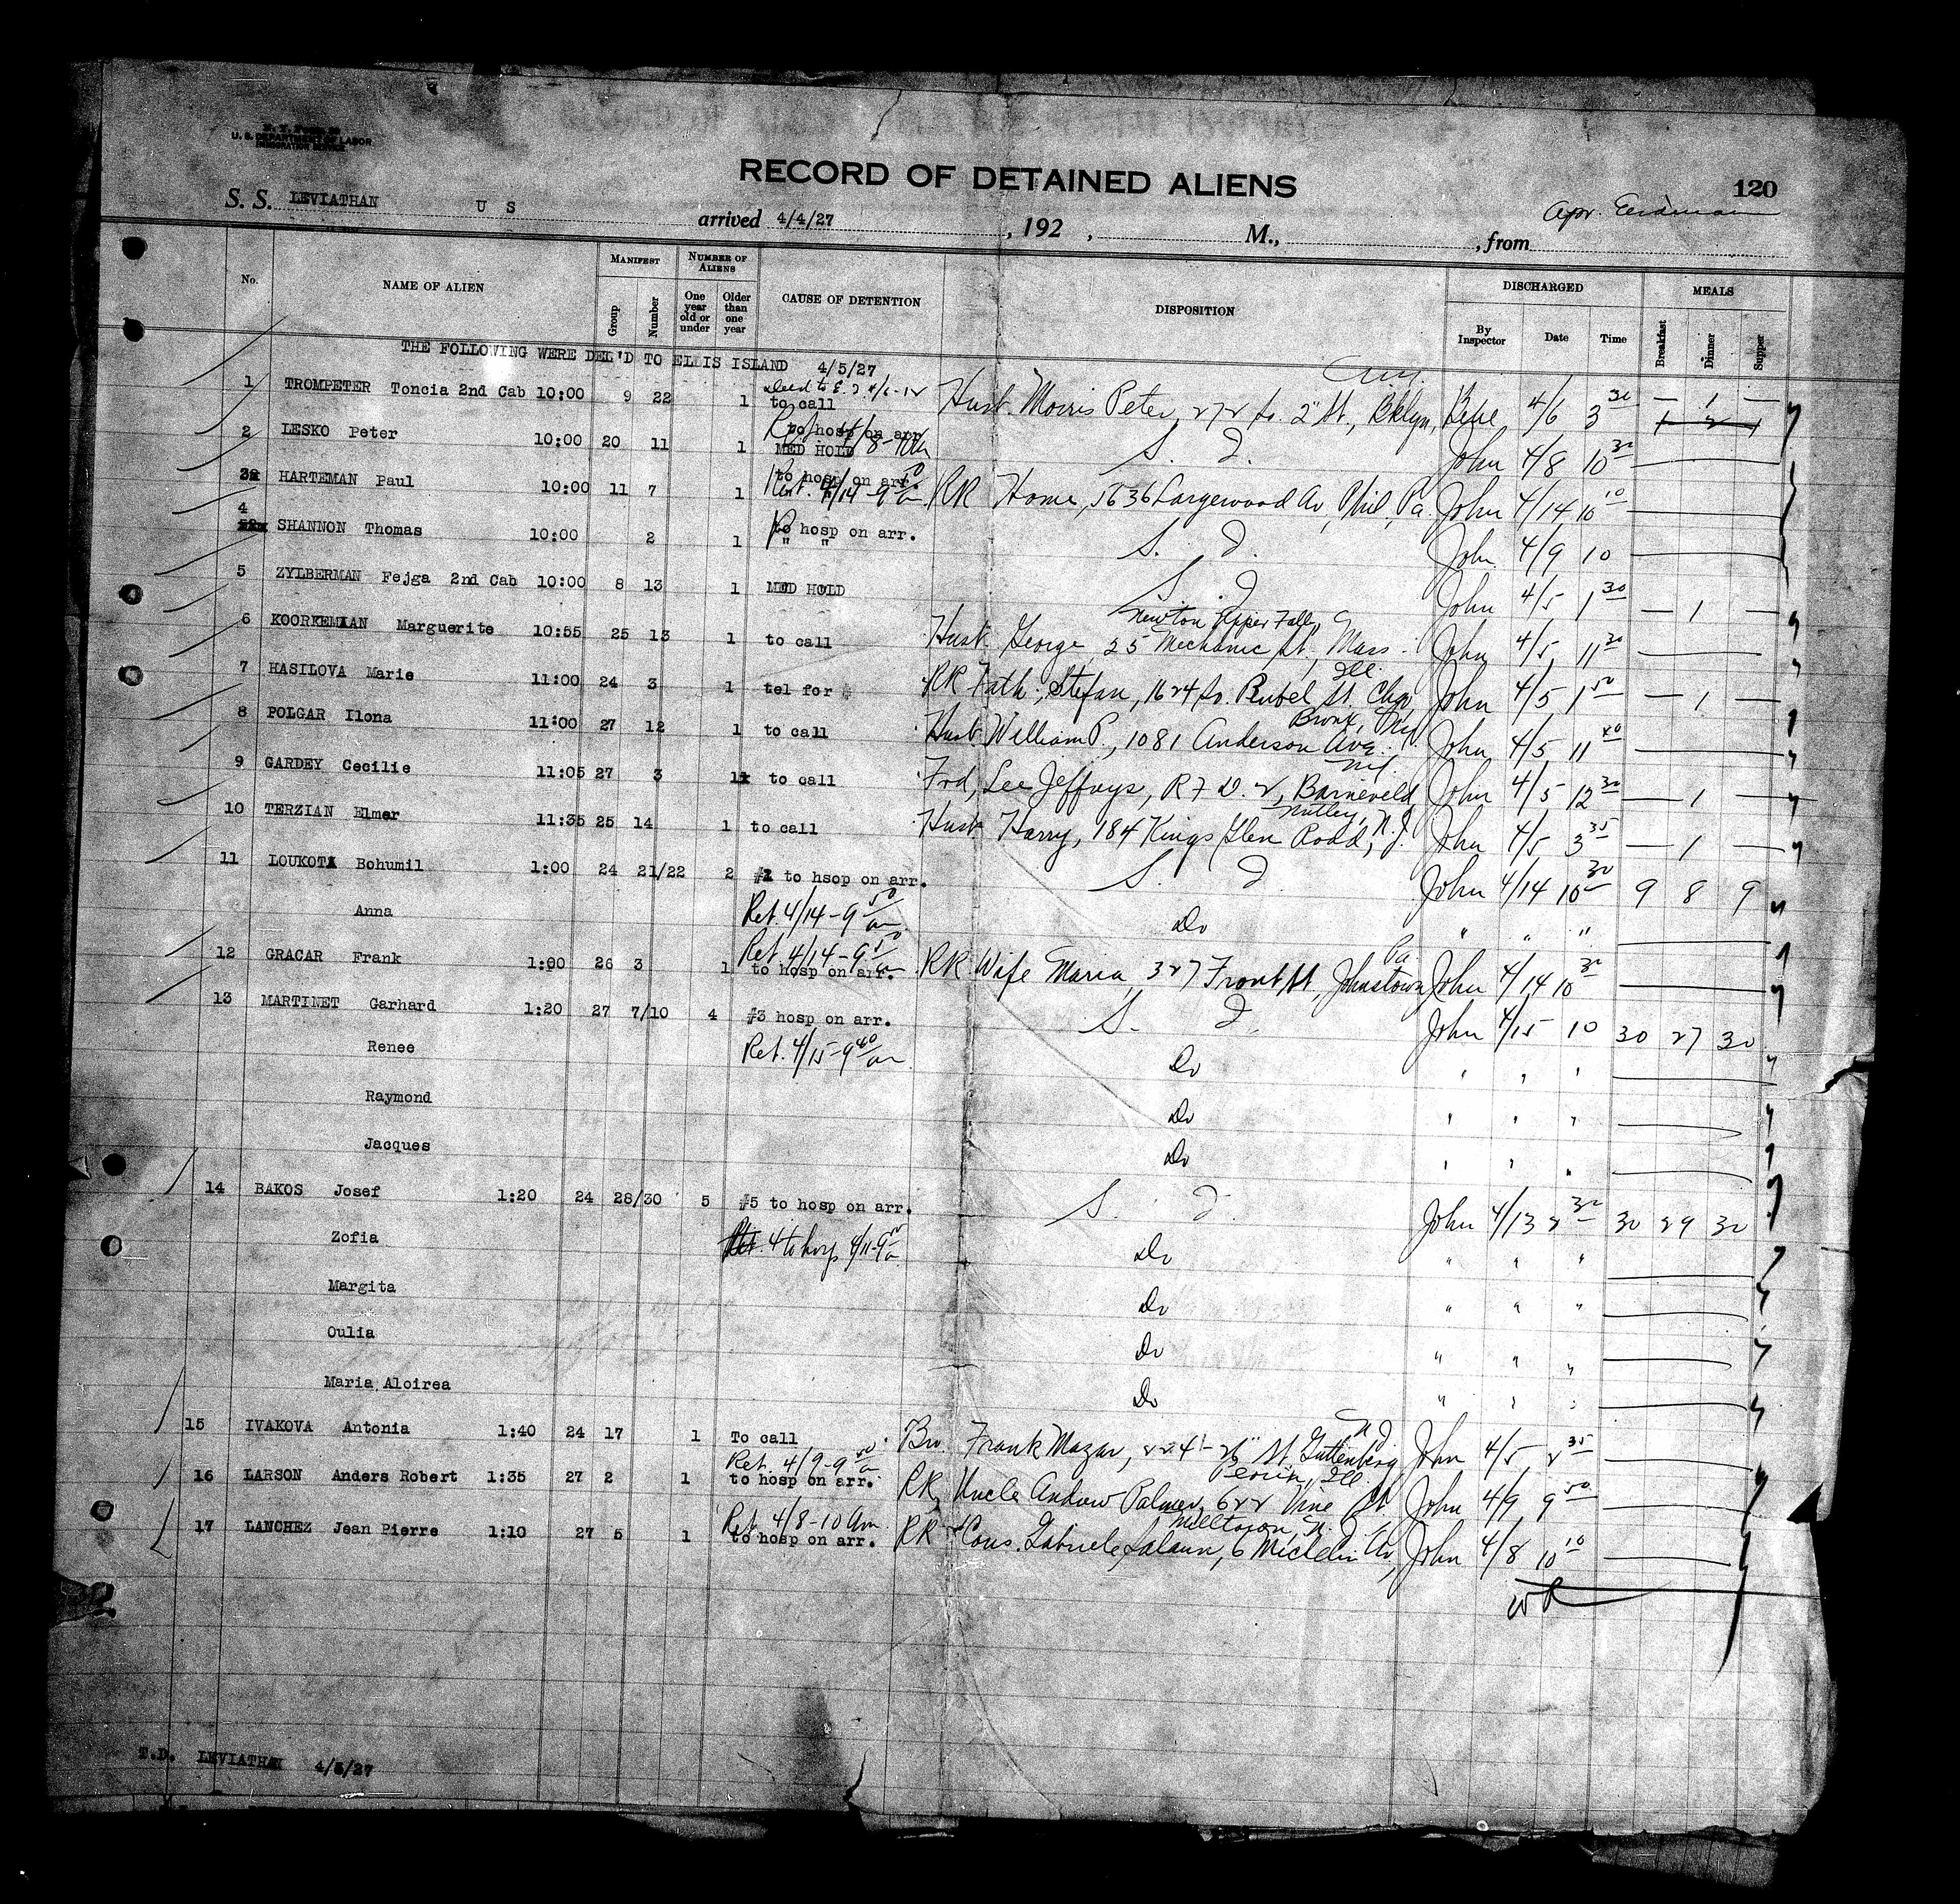 U. S. DEPARTMENT OF LABOR
IMMIGRATION SERVICE
RECORD OF DETAINED ALIENS
120
S. S. LEVIATHAN U S arrived 4/4/27 , 192 , M., , from
No. NAME OF ALIEN MANIFEST Group Number NUMBER OF ALIENS One year old or under Older than one year CAUSE OF DETENTION DISPOSITION DISCHARGED By Inspector Date Time MEALS Breakfast Dinner Supper
THE FOLLOWING WERE DEL'D TO ELLIS ISLAND 4/5/27
1 TROMPETER Toncia 2nd Cab 10:00 9 22 1 to call Husb. Morris Peter, 272 So. 2" St., Bklyn, 4/6 3 30 — 1 —
2 LESKO Peter 10:00 20 11 1 to hosp on arr MED HOLD S. I. John 4/8 10 30
3 HARTEMAN Paul 10:00 11 7 1 to hosp on arr. Ret. 4/14-9 50 am RR Home, 5636 Largewood Av, Phil, Pa. John 4/14 10 10
4 SHANNON Thomas 10:00 2 1 to hosp on arr. " " S. I. John 4/9 10
5 ZYLBERMAN Fejga 2nd Cab 10:00 8 13 1 MED HOLD S. I. John 4/5 1 30 — 1 —
6 KOORKEMIAN Marguerite 10:55 25 13 1 to call Husb. George 25 Mechanic St., Newton Upper Falls, Mass. John 4/5 11 30
7 HASILOVA Marie 11:00 24 3 1 tel for $ RR Fath; Stefan, 1624 So. Rubel St. Chgo, Ill. John 4/5 1 50 — 1 —
8 POLGAR Ilona 11:00 27 12 1 to call Husb. William P., 1081 Anderson Ave. Bronx, NY John 4/5 11 40
9 GARDEY Cecilie 11:05 27 3 1 to call Frd, Lee Jeffrys, R F D. 2, Barneveld, NY. John 4/5 12 30 — 1 —
10 TERZIAN Elmer 11:35 25 14 1 to call Husb Harry, 184 Kings Glen Road, Nutley, N. J. John 4/5 3 35 — 1 —
11 LOUKOTA Bohumil 1:00 24 21/22 2 #1 to hsop on arr. S. I. John 4/14 10 30 9 8 9
Anna Ret. 4/14-9 50 am Do " " "
12 GRACAR Frank 1:00 26 3 1 Ret. 4/14-9 50 to hosp on arr. RR Wife Maria, 327 Front St, Johnstown Pa. John 4/14 10 30
13 MARTINET Garhard 1:20 27 7/10 4 #3 hosp on arr. S. I. John 4/15 10 30 27 30
Renee Ret. 4/15-9 40 am Do " " "
Raymond Do " " "
Jacques Do " " "
14 BAKOS Josef 1:20 24 28/30 5 #5 to hosp on arr. S. I. John 4/13 2 30 30 29 30
Zofia 4 to hosp 4/11-9 Do " " "
Margita Do " " "
Oulia Do " " "
Maria Aloirea Do " " "
15 IVAKOVA Antonia 1:40 24 17 1 To call Bro Frank Mazar, 224-26" St. Guttenberg N J John 4/5 2 35
16 LARSON Anders Robert 1:35 27 2 1 Ret. 4/9-9 50 a to hosp on arr. RR, Uncle Andrew Palmer, 622 Vine St. Peoria, Ill John 4/9 9 50
17 LANCHEZ Jean Pierre 1:10 27 5 1 Ret. 4/8-10 Am. to hosp on arr. RR Cous. Gabriele Salaun, 6 Michelin Av, Milltown, N. J. John 4/8 10 10
WR
T.D. LEVIATHAN 4/5/27